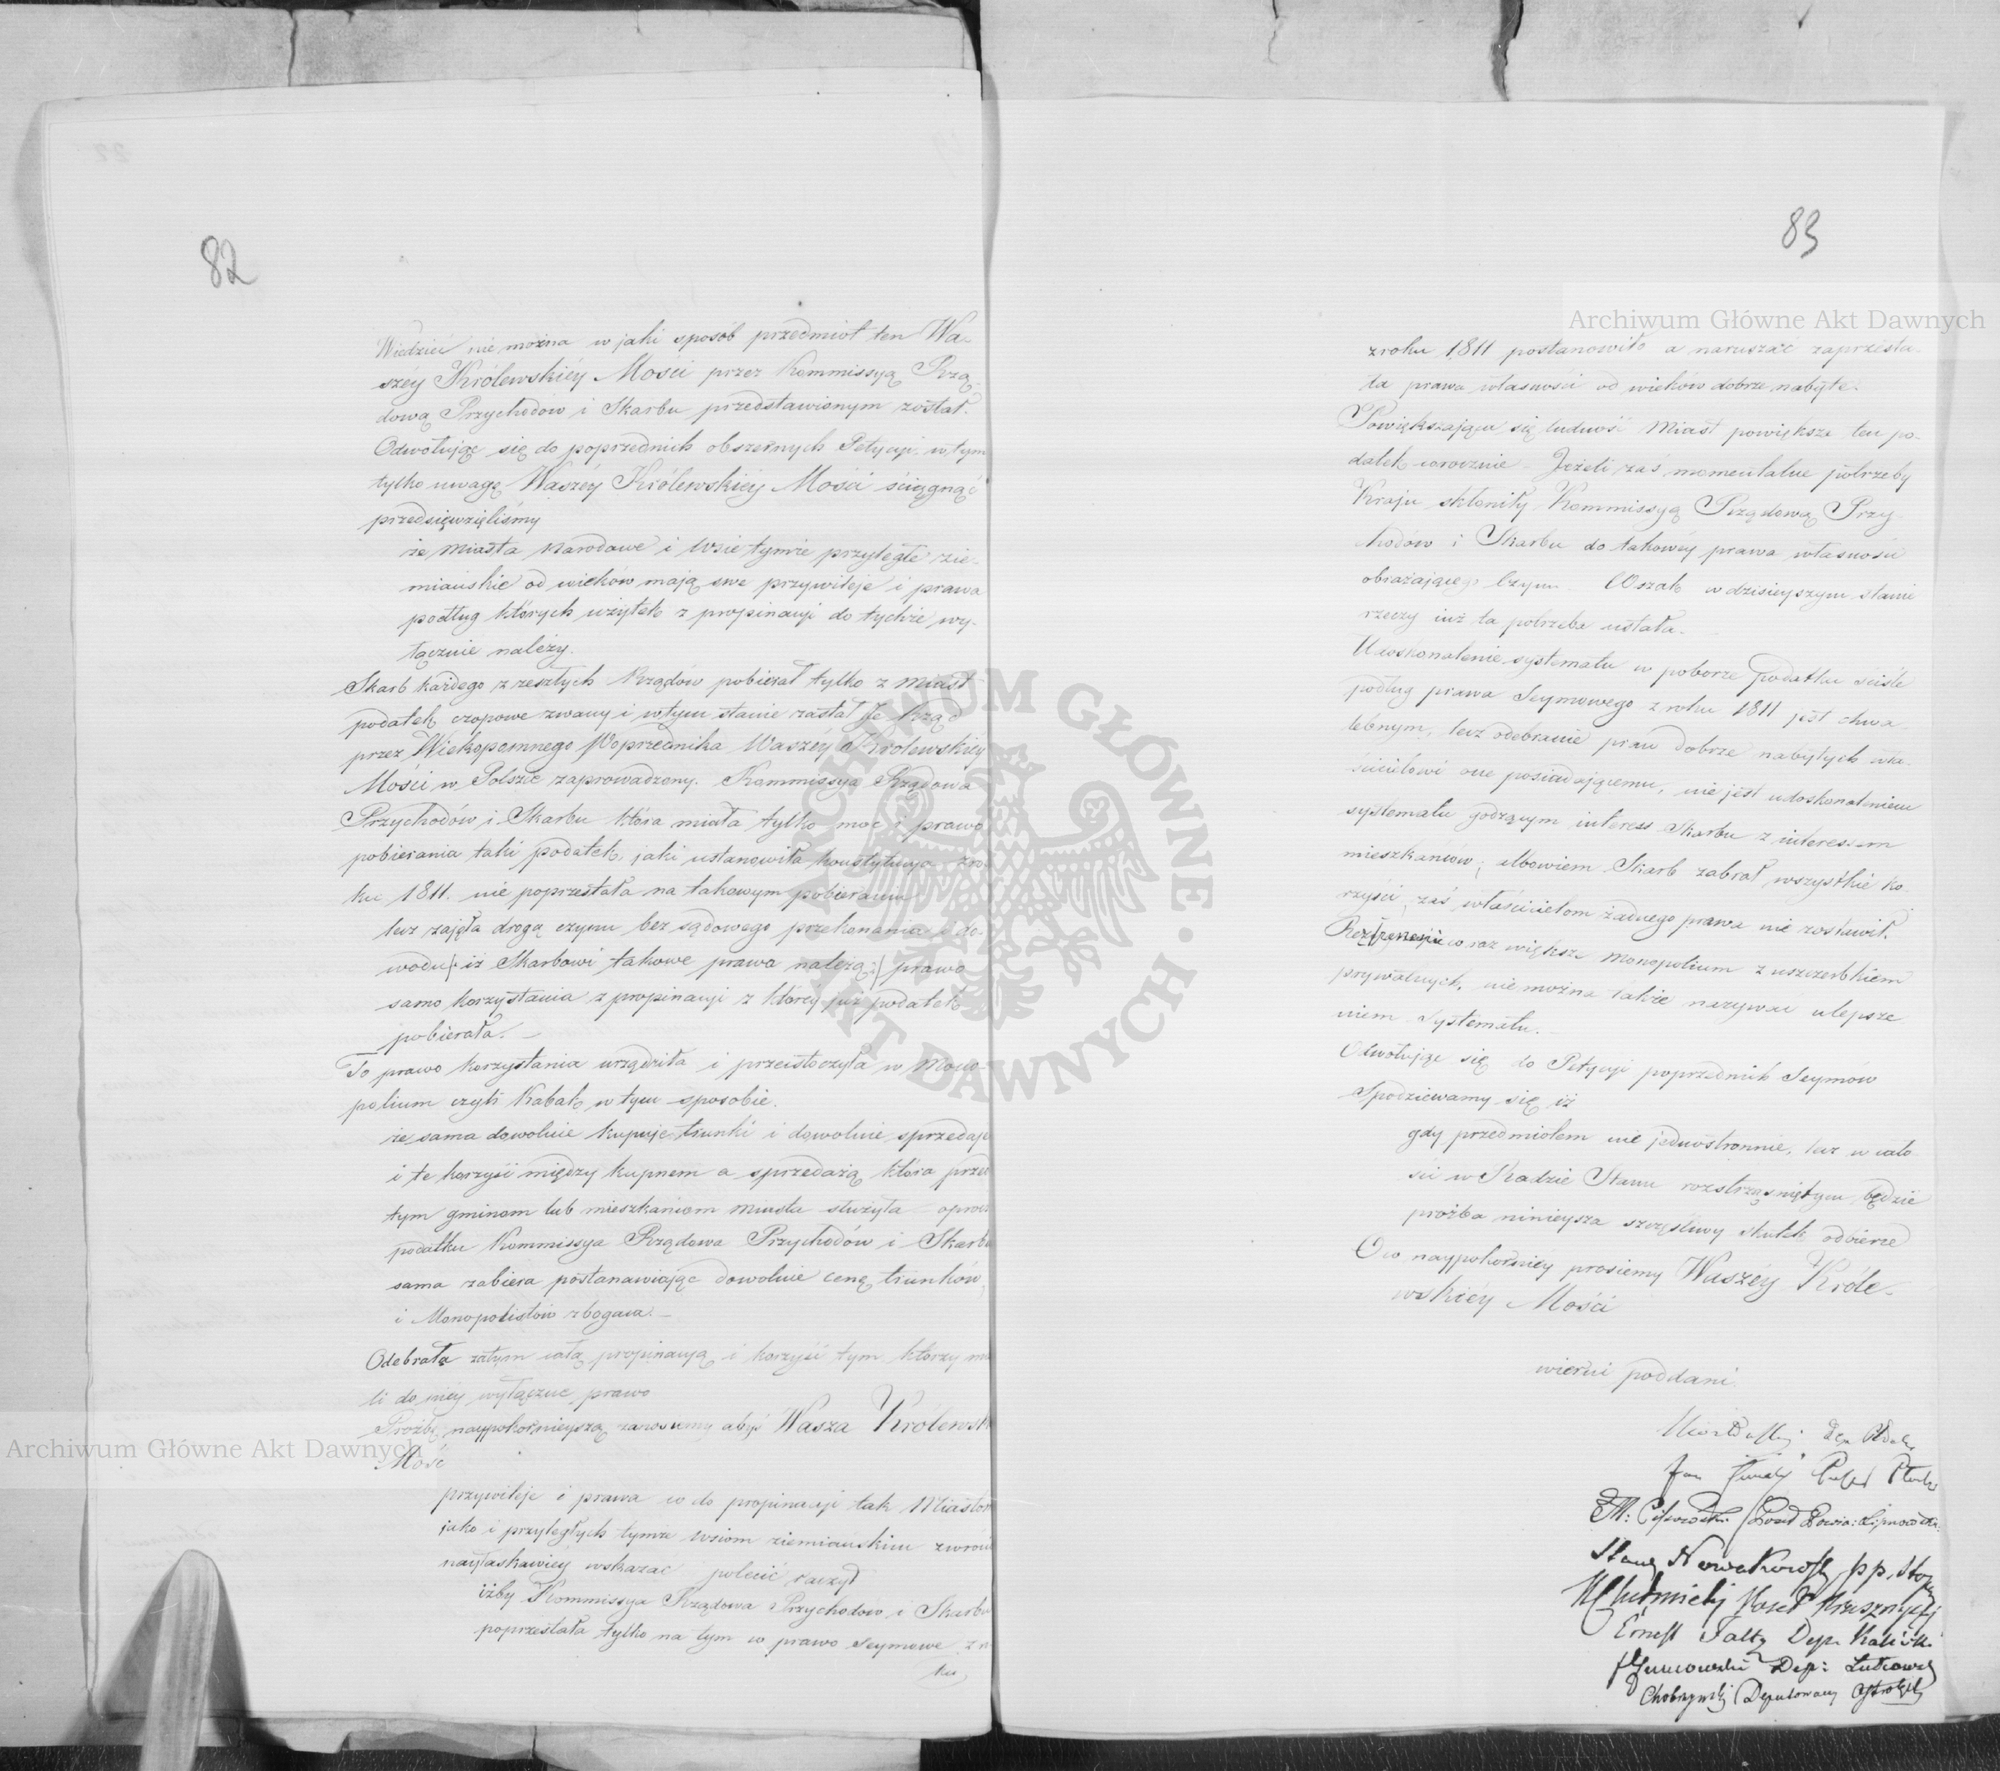 82
Wiedzieć nie można w jaki sposób przedmiot ten Wa-
széy Królewskiéy Mości przez Kommissyą Rzą-
dową Przychodów i Skarbu przedstawionym został.
Odwołując się do poprzednich obszernych Petycyi, w tym
tylko uwagę Waszéy Królewskiéy Mości ściągnąć
przedsięwzięliśmy
że Miasta Narodowe i Wsie tymże przyległe zie-
miańskie od wieków mają swe przywileje i prawa
podług których użytek z propinacyi do tychże wy-
łącznie należy.
Skarb każdego z zeszłych Rządów pobierał tylko z Miast
podatek czopowe zwany i w tym stanie zastał Je Rząd
przez Wiekopomnego Poprzednika Waszéy Krolewskiey
Mości w Polszcze zaprowadzony. Kommissya Rządowa
Przychodów i Skarbu która miała tylko moc i prawo
pobierania taki podatek, jaki ustanowiła konstytucya z ro-
ku 1811. nie poprzestała na takowym pobieraniu
lecz zajęła drogą czynu bez sądowego przekonania i do-
wodu /: iż Skarbowi takowe prawa należą :/ prawo
samo korzystania z propinacyi z którey już podatek
pobierała. —
To prawo korzystania urządziła i przeistoczyła w Mono-
polium czyli Kabak w tym sposobie.
że sama dowolnie kupuje trunki i dowolnie sprzedaje
i te korzyści między kupnem a sprzedażą która przed
tym gminom lub mieszkańcom miasta służyła oprócz
podatku Kommissya Rządowa Przychodów i Skarbu
sama zabiera postanawiając dowolnie cenę trunków,
i Monopolistów zbogaca. —
Odebrała zatym całą propinacyą i korzyść tym którzy mie
li do niey wyłączne prawo
Prożbę naypokornieyszą zanosiemy abyś Wasza Królewska
Mość
przywileje i prawa co do propinacyi tak Miastom
jako i przyległych tymże wsiom ziemiańskim zwrocić
nayłaskawiéy wskazać polecić raczył
iżby Kommissya Rządowa Przychodow i Skarbu
poprzestała tylko na tym co prawo Seymowe z ro
ku
83
z roku 1811 postanowiło a naruszać zaprzesta-
ła prawa własności od wieków dobrze nabyte.
Powiększająca się ludność Miast powiększa ten po-
datek corocznie - Jeżeli zaś momentalne potrzeby
Kraju skłoniły Kommissyą Rządową Przy-
chodów i Skarbu do takowéy prawa własności
obrażającego czynu. Wszak w dzisieyszym stanie
rzeczy już ta potrzeba ustała.
Udoskonalenie systematu w poborze Podatku ściśle
podług prawa Seymowego z roku 1811 jest chwa-
lebnym, lecz odebranie praw dobrze nabytych wła-
ścicielowi one posiadającemu, nie jest udoskonaleniem
systematu godzącym interess Skarbu z interessem
mieszkańców, albowiem Skarb zabrał wszystkie ko-
rzyści, zaś właścicielom żadnego prawa nie zostawił.
coraz większe monopolium z uszczerbkiem
prywatnych, nie można także nazywać ulepsze
niem Systematu. —
Odwołując się do Petycyi poprzednich Seymów
Spodziewamy się iż
gdy przedmiotem nie jednostronnie, lecz w cało-
ści w Radzie Stanu rozstrząśniętym będzie
prożba ninieysza szczęśliwy skutek odbierze
O co naypokorniey prosiemy Waszéy Króle-
wskiéy Mości
wierni poddani
Jan
Lipnowski
Stan Nowakowski
Poseł
Ernest Faltz Dep. Kalisk.
Dep:
Deputowany
Archiwum Główne Akt Dawnych
Archiwum Główne Akt Dawnych
ARCHIWUM GŁÓWNE · AKT DAWNYCH ·